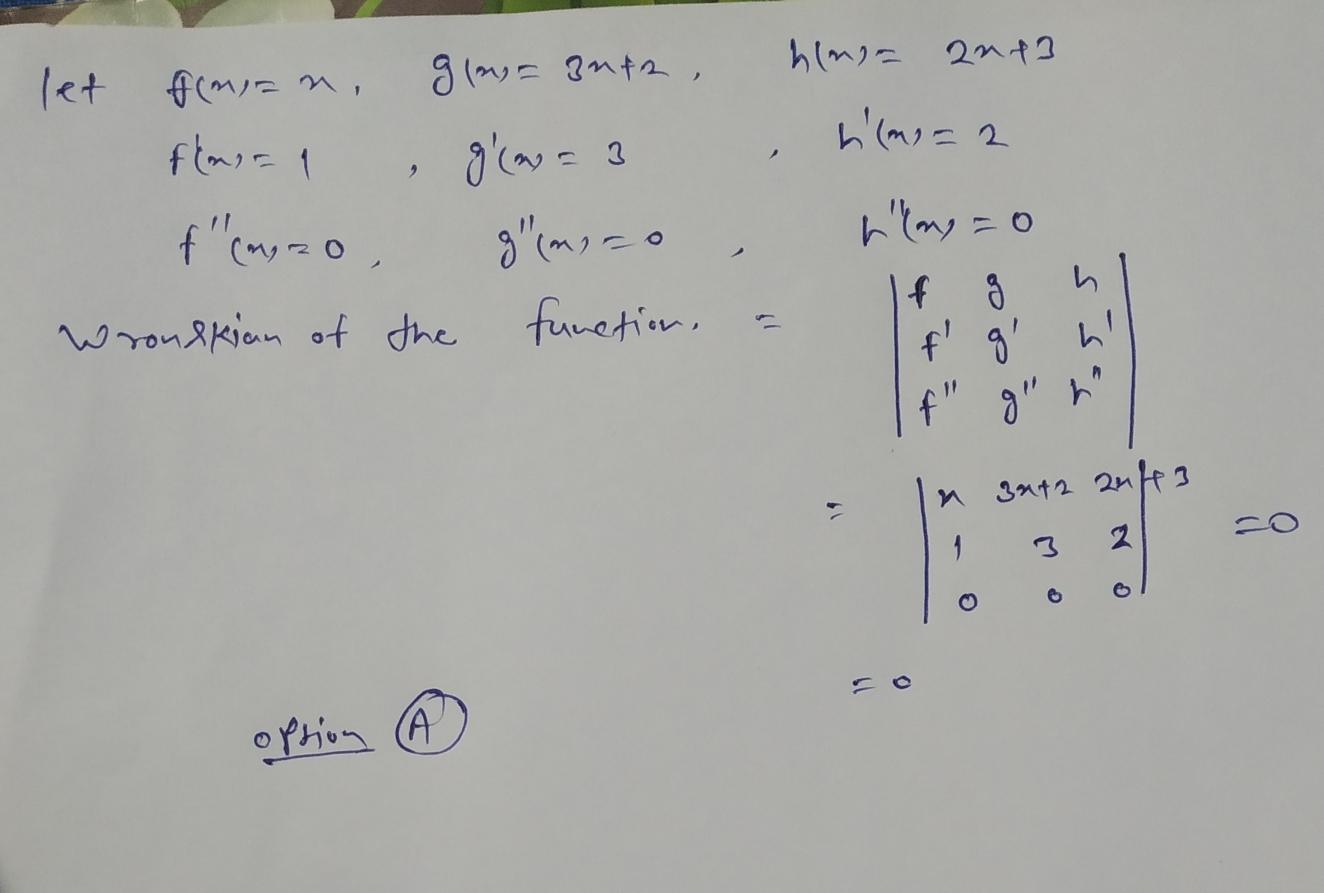 let f(x) = x, g(x) = 3x+2, h(x) = 2x+3
f'(x) = 1, g'(x) = 3, h'(x) = 2
f''(x) = 0, g''(x) = 0, h''(x) = 0
Wronskian of the function. = | f g h |
| f' g' h' |
| f'' g'' h'' |
= | x 3x+2 2x+3 |
| 1 3 2 | = 0
| 0 0 0 |
= 0
option A